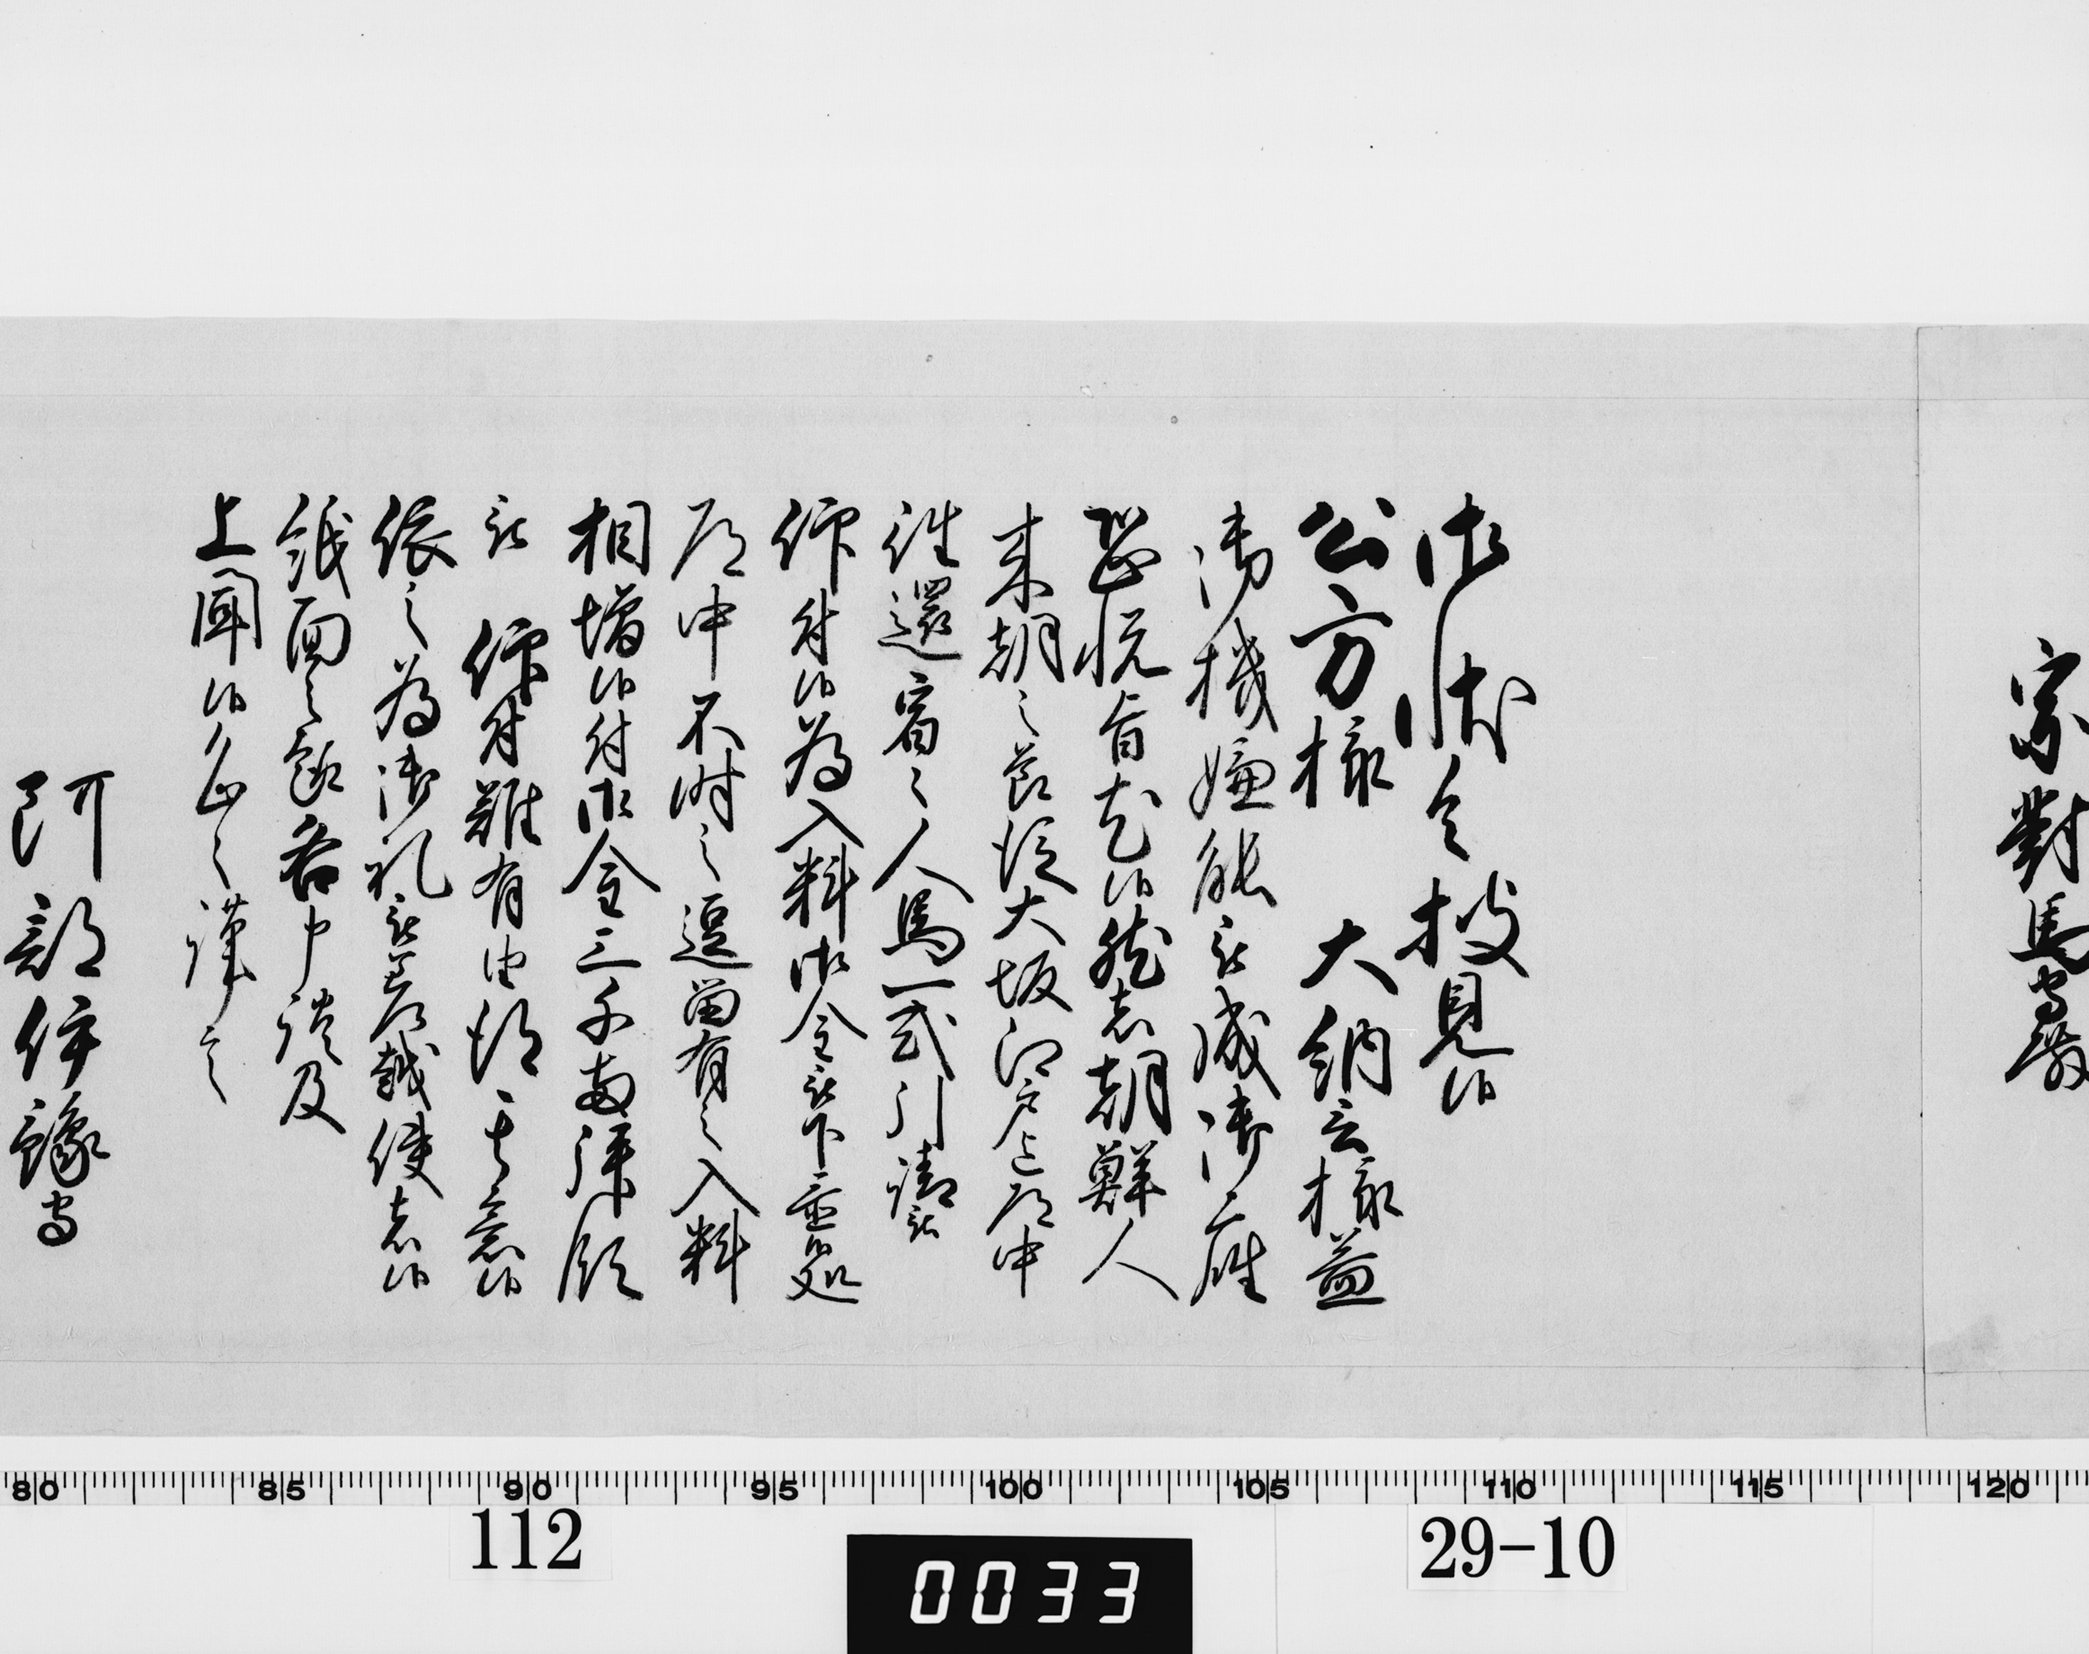 宗對馬守殿
御状令披見候
公方様 大納言様益
御機嫌能被成御座
恐悦旨尤候然者朝鮮人
来朝之節従大坂江戸迄道中
往還宿之人馬一式引請被
仰付候為入料御金被下置処
道中不時之逗留有之入料
相増候付御金三千両拝領
被 仰付難有由得其意候
依之為御礼被差越使者候
紙面之趣各申談及
上聞候恐々謹言
阿部伊豫守
80 85 90 95 100 105 110 115 120
112
29-10
0033